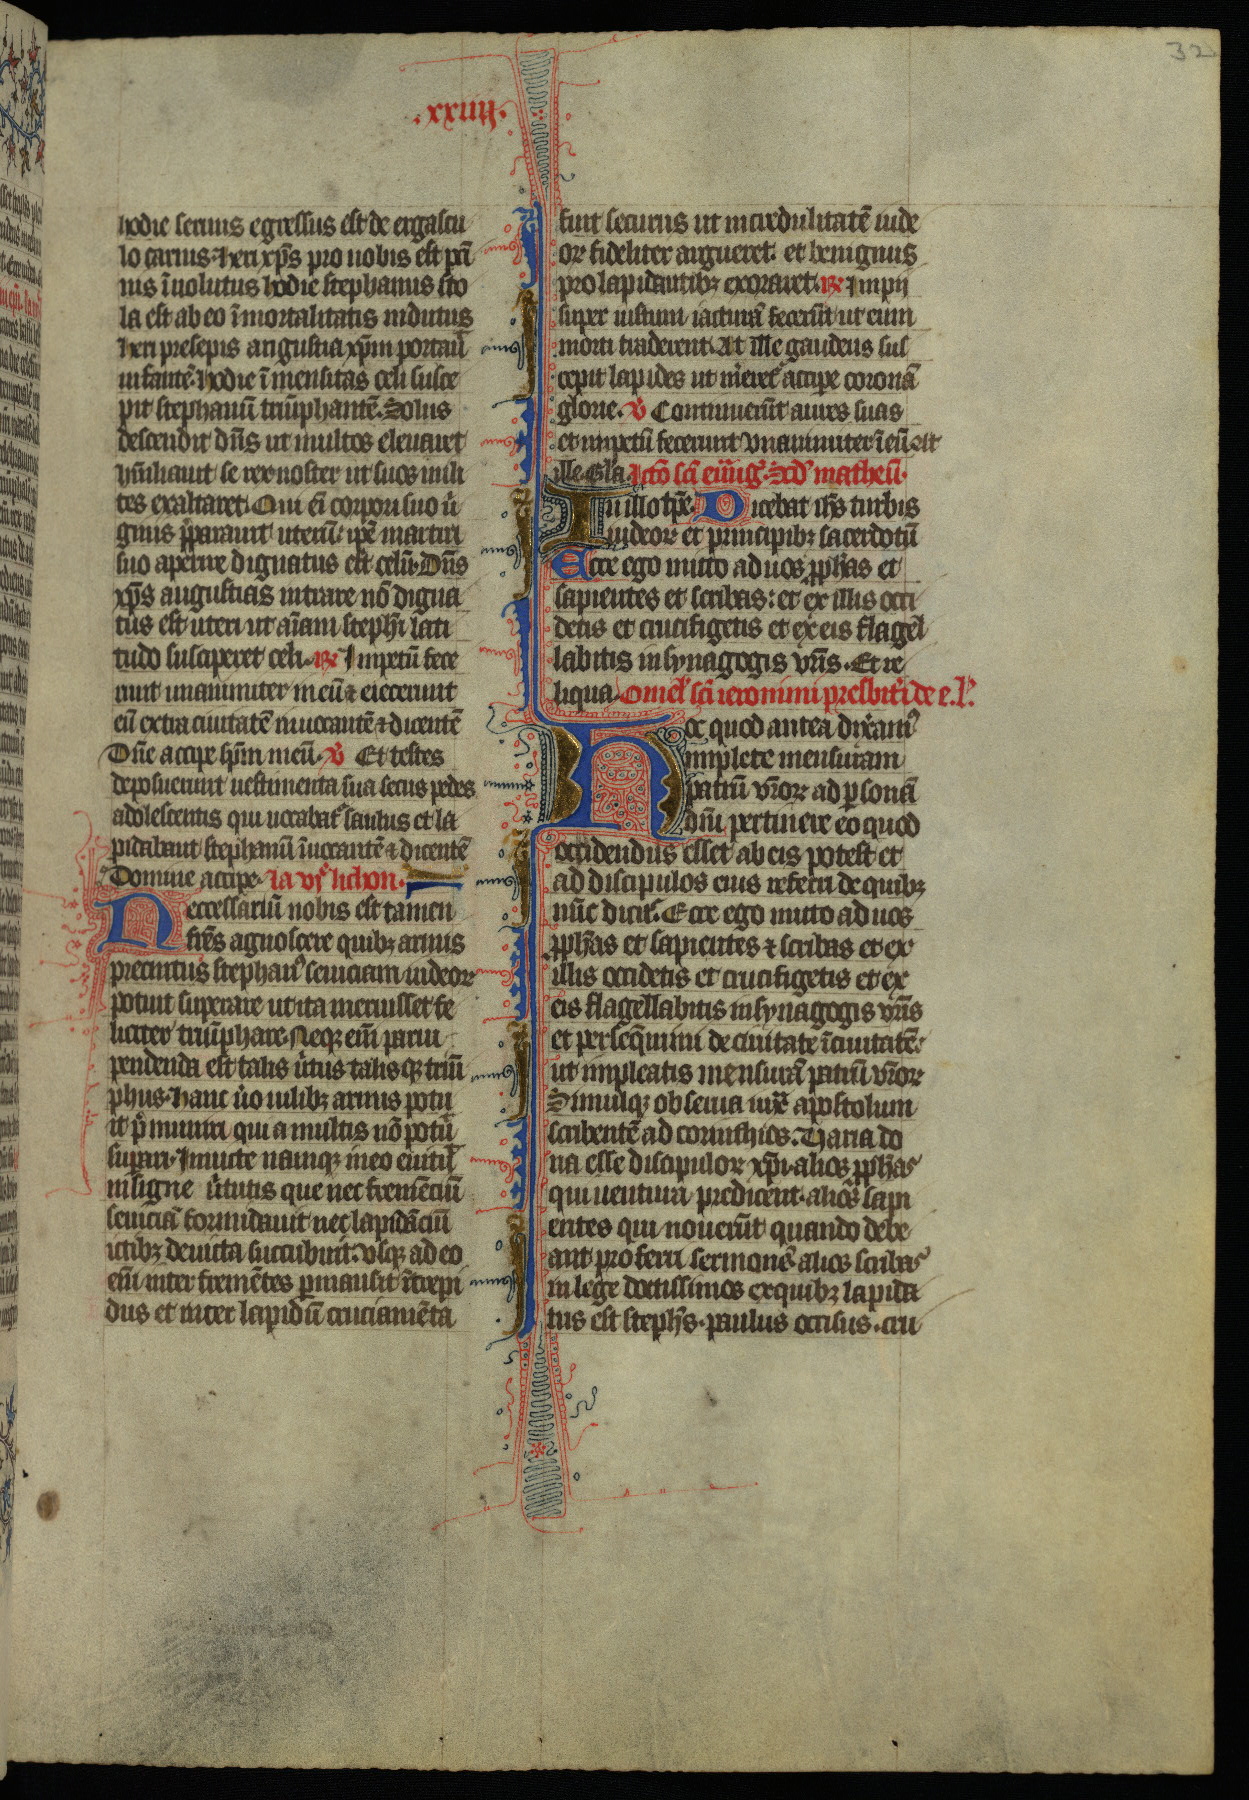 32
.xxiiij.
hodie seruus egressus est de ergastu
lo carnis. Heri xp̄s pro nobis est pā
nis īuolutus hodie stephanus sto
la est ab eo īmortalitatis indutus
Heri presepis angustia xp̄m portauit
infantē. hodie īmensitas celi susce
pit stephanū triūphantē. Solus
descendit dn̄s ut multos eleuaret
hūiliauit se rex noster ut suos mili
tes exaltaret. Qui ei corpori suo ui
ginis p̄parauit uterū. ipē martiri
suo aperire dignatus est celū. Dn̄s
xp̄s angustias intrare nō digna
tus est uteri ut aīam stephī lati
tudo susciperet celi. R̄ Impetū fece
runt unanimiter in eū ⁊ eiecerunt
eū extra ciuitatē inuocantē ⁊ dicentē
Dn̄e accipe sp̄m meū. V Et testes
deposuerunt uestimenta sua secus pedes
adolescentis qui uocabatᷣ saulus et la
pidabant stephanū īuocantē ⁊ dicentē
Domine accipe.
Neccessariū nobis est tamen
fr̄es agnoscere quibꝫ armis
precintus stephanꝰ seuiciam iudeoꝝ
potuit superare ut ita meruisset fe
liciter triūphare. Neqꝫ eī parui
pendenda est talis ūtus talisqꝫ triū
phus. Hanc ūo uilibꝫ armis potu
it p̄ muniri qui a multis nō potuit
supari. Inuicte namqꝫ in eo enituit
insigne ūtutis que nec fremēciū
seuiciā formidauit nec lapidāciū
ictibꝫ deuicta succubuit. Usqꝫ ad eo
eī inter fremētes pmansit ītrepi
dus et inter lapidū cruciamēta
fuit securus ut incredulitatē iude
oꝝ fideliter argueret. et benignus
pro lapidantibꝫ exoraret. R̄ Impij
super iustum iacturā fecerūt ut eum
morti traderent. At ille gaudens sus
cepit lapides ut mereretᷣ accipe coronā
glorie. V Continuerūt aures suas
et impetū fecerunt vnanimiter ī eū. At
ille. Gl̄a. scī euāg. Scd̄. matheū.
In illo tp̄e. Dicebat ih̄s turbis
iudeoꝝ et principibꝫ sacerdotū
Ecce ego mitto ad uos ꝓph̄as et
sapientes et scribas: et ex illis occi
detis et crucifigetis et ex eis flagel
labitis in synagogis vr̄is. Et re
liqua. Omel̄ scī ieronimi presbiteri de e. l.
Hoc quod antea dixeramꝰ
implete mensuram
patrū vr̄oꝝ ad psonā
dn̄i pertinere eo quod
occidendus esset ab eis potest et
ad discipulos eius referri de quibꝫ
nūc dicitᷣ. Ecce ego mitto ad uos
ꝓph̄as et sapientes ⁊ scribas et ex
illis occidetis et crucifigetis et ex
eis flagellabitis in synagogis vr̄is
et perseq̄mini de ciuitate ī ciuitatē
ut impleatis mensurā patrū vr̄oꝝ
Simulqꝫ obserua iuxͣ apostolum
scribentē ad corinthios. Uaria do
na esse discipuloꝝ xp̄i. alios ꝓph̄as
qui uentura predicent. alios sapi
entes qui nouerūt quando debe
ant proferri sermonē. alios scribas
in lege doctissimos ex quibꝫ lapida
tus est steph̄s. paulus occisus. cru